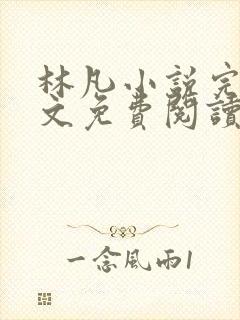 林凡小説完
文免費閱讀
一念風雨1